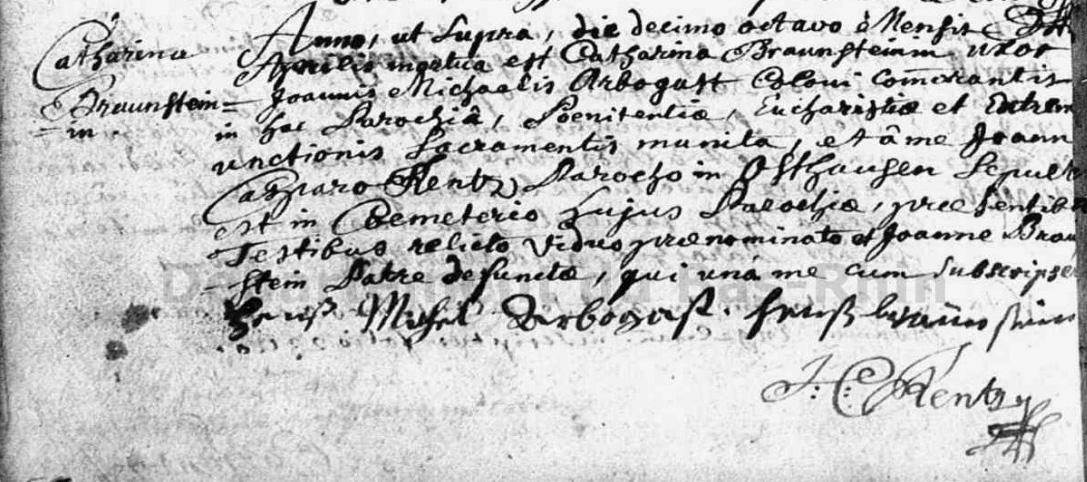 Catharina
Braunstein=
=in
Anno, ut Supra, die decimo octavo Mensis
Aprilis mortua est Catharina Braunsteinin uxor
Joannis Michaelis Arbogast Coloni Com̄orantis
in hac Parochiâ, Poenitentiæ, Eucharistiæ et Extrem
unctionis Sacramentis munita, et â me Joann
Casparo Kentz Parocho in Osthausen Sepult
est in Coemeterio hujus Parochiæ, præsentib
Testibus relicto viduo prænominato et Joanne Brau
=stein Patre defunctæ, qui unâ me cum subscripse
Hanß Michel Arbogast. Hanß
J: C: Kentz